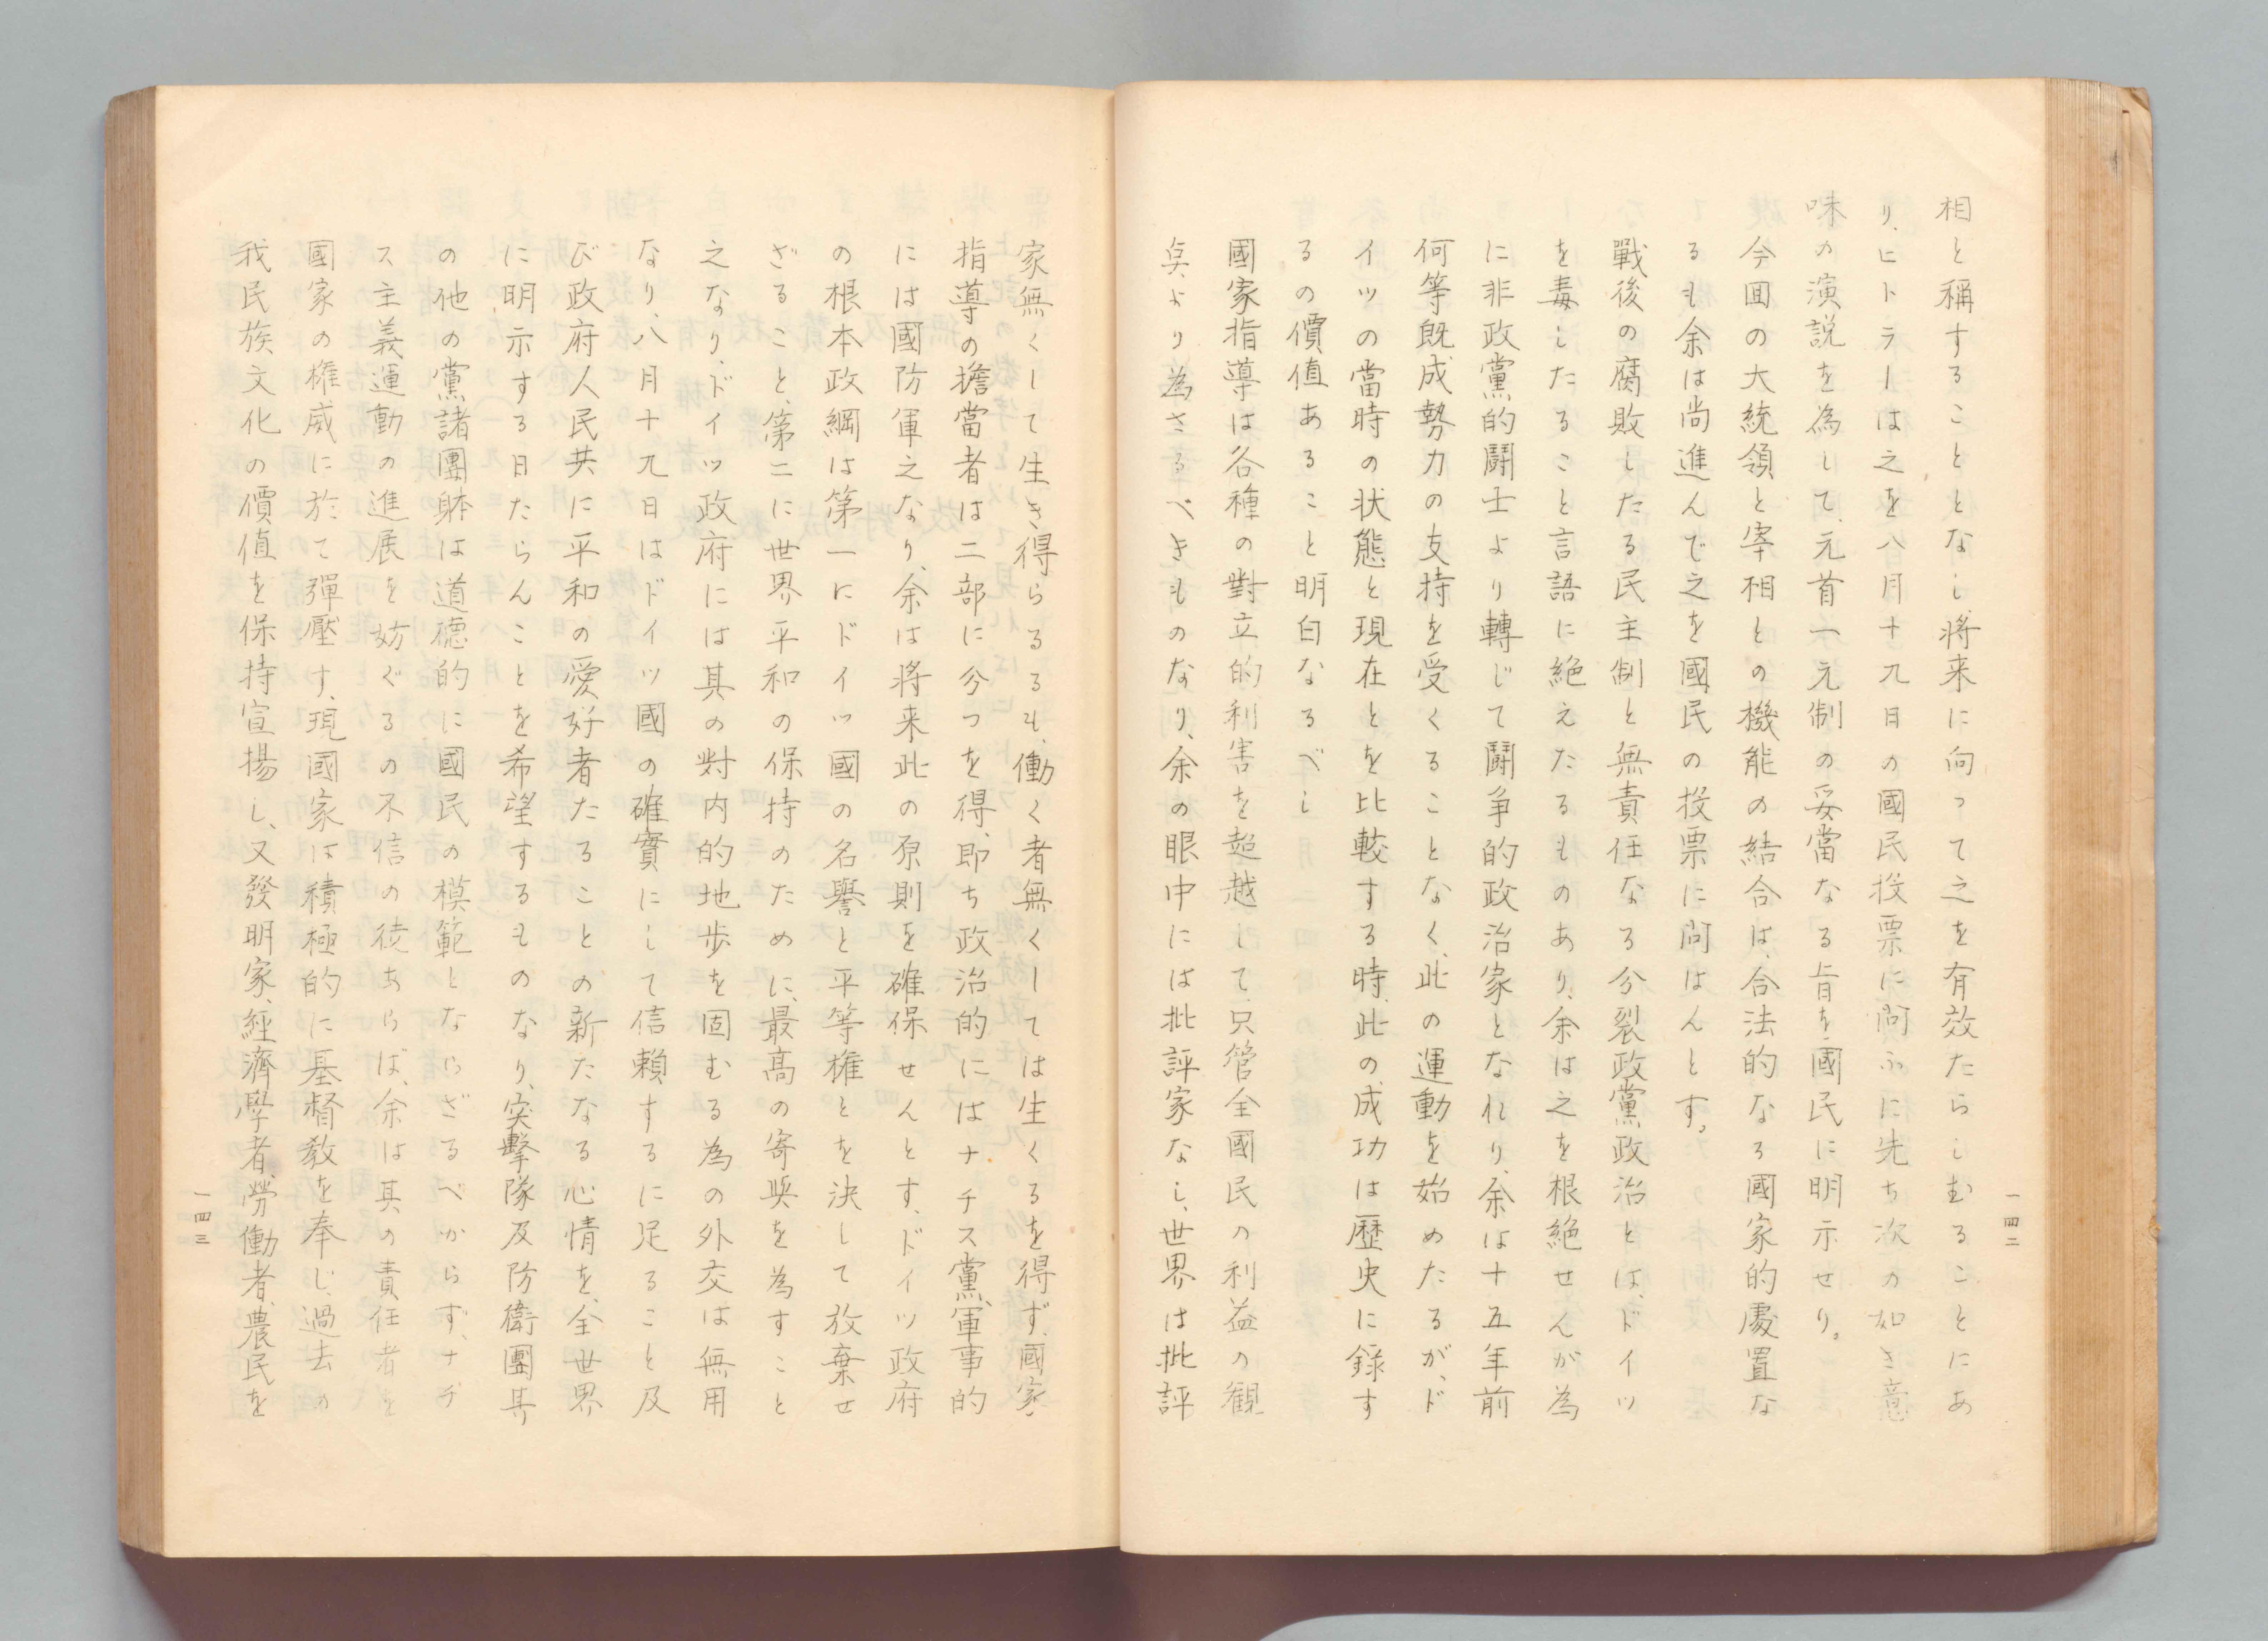 相と稱することとなし、將来に向つて之を有效たらしむることにあ
り、ヒトラーは之を八月十九日の國民投票に問ふに先ち次の如き意
味の演説を為して、元首一元制の妥當なる旨を國民に明示せり。
今囬の大統領と宰相との機能の結合は、合法的なる國家的處置な
るも余は尚進んで之を國民の投票に問はんとす。
戰後の腐敗したる民主制と無責任なる分裂政黨政治とは、ドイツ
を毒したること言語に絶えたるものあり、余は之を根絶せんが為
に非政黨的鬪士より轉じて鬪争的政治家となれり、余は十五年前
何等既成勢力の支持を受くることなく、此の運動を始めたるが、ド
イツの當時の状態と現在とを比較する時、此の成功は歴史に録す
るの價值あること明白なるべし
國家指導は各種の對立的利害を超越して、只管全國民の利益の観
奌より為さるべきものなり、余の眼中には批評家なし、世界は批評
一四二
家無くして生き得らるるも、働く者無くしては生くるを得ず、國家
指導の擔當者は二部に分つを得、即ち政治的にはナチス黨、軍事的
には國防軍之なり、余は將来此の原則を確保せんとす、ドイツ政府
の根本政綱は第一にドイツ國の名譽と平等權とを決して放棄せ
ざること、第二に世界平和の保持のために、最高の寄與を為すこと
之なり、ドイツ政府には其の對内的地歩を固むる為の外交は無用
なり、八月十九日はドイツ國の確實にして信頼するに足ること及
び政府人民共に平和の愛好者たることの新たなる心情を、全世界
に明示する日たらんことを希望するものなり、突擊隊及防衛團其
の他の黨諸團躰は道德的に國民の模範とならざるべからず、ナチ
ス主義運動の進展を妨ぐるの不信の徒あらば、余は其の責任者を
國家の權威に於て彈壓す、現國家は積極的に基督教を奉じ、過去の
我民族文化の價值を保持宣揚し、又發明家、經濟學者、勞働者、農民を
一四三